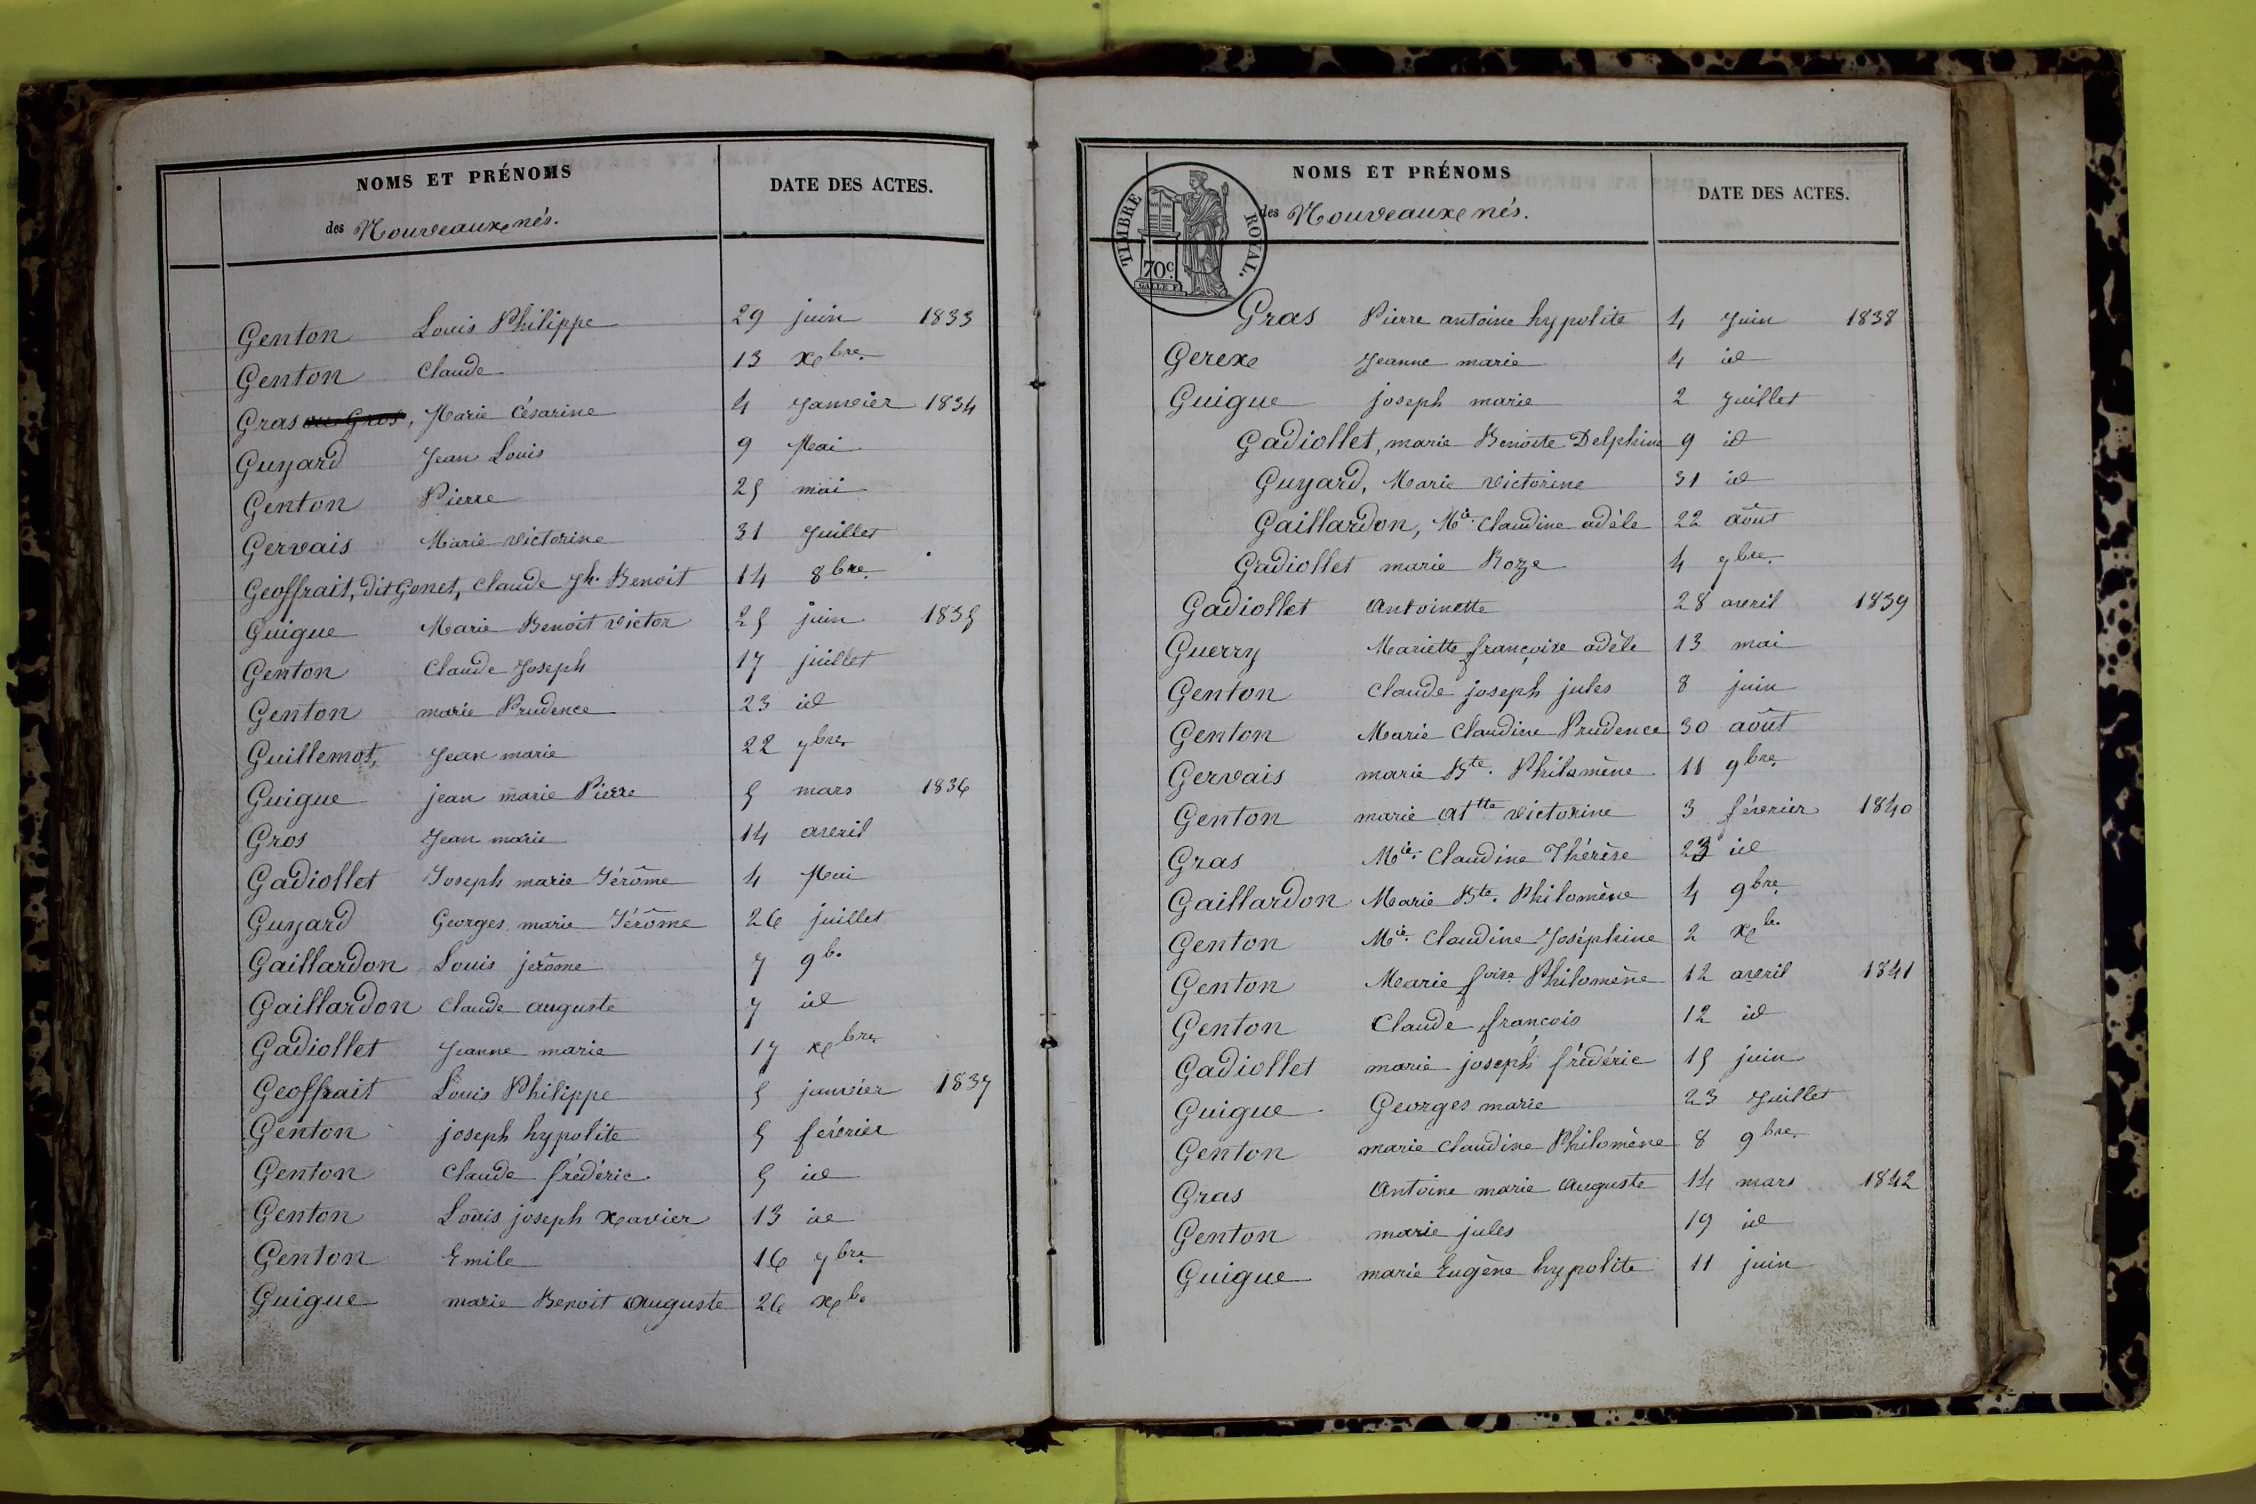 NOMS ET PRÉNOMS
des Nouveaux nés.
DATE DES ACTES.
Genton Louis Philippe 29 juin 1833
Genton Claude 13 Xbre.
Gras ou Gros, Marie Césarine 4 Janvier 1834
Guyard Jean Louis 9 Mai
Genton Pierre 25 mai
Gervais Marie victorine 31 Juillet
Geoffrait, dit Gonet, Claude Jh. Benoit 14 8bre.
Guigue Marie Benoit victor 25 juin 1835
Genton Claude Joseph 17 juillet
Genton marie Prudence 23 id
Guillemot, Jean marie 22 7bre.
Guigue jean marie Pierre 5 mars 1836
Gros Jean marie 14 avril
Gadiollet Joseph marie Jérôme 4 Mai
Guyard Georges marie Jérôme 26 juillet
Gaillardon Louis jerôme 7 9b.
Gaillardon Claude auguste 7 id
Gadiollet Jeanne marie 17 Xbre.
Geoffrait Louis Philippe 5 janvier 1837
Genton joseph hypolite 5 février
Genton Claude frédéric 5 id
Genton Louis joseph Xavier 13 id
Genton Emile 16 7bre
Guigue marie Benoit Auguste 26 Xb.
TIMBRE ROYAL.
70c.
NOMS ET PRÉNOMS
des Nouveaux nés.
DATE DES ACTES.
Gras Pierre antoine hypolite 4 Juin 1838
Gerex Jeanne marie 4 id
Guigue joseph marie 2 Juillet
Gadiollet, marie Benoite Delphine 9 id
Guyard, Marie victorine 31 id
Gaillardon, Mie. Claudine adèle 22 août
Gadiollet marie Roze 4 7bre.
Gadiollet Antoinette 28 avril 1839
Guerry Mariette françoise adèle 13 mai
Genton Claude joseph jules 8 juin
Genton Marie Claudine Prudence 30 août
Gervais marie Bte. Philomène 11 9bre.
Genton marie Attte victorine 3 février 1840
Gras Mie. Claudine Thérèse 23 id
Gaillardon Marie Bte. Philomène 4 9bre.
Genton Mie. Claudine Joséphine 2 Xb.
Genton Marie foise Philomène 12 avril 1841
Genton Claude françois 12 id
Gadiollet marie joseph frédéric 15 juin
Guigue Georges marie 23 Juillet
Genton marie Claudine Philomène 8 9bre.
Gras Antoine marie Auguste 14 mars 1842
Genton marie jules 19 id
Guigue marie Eugène hypolite 11 juin